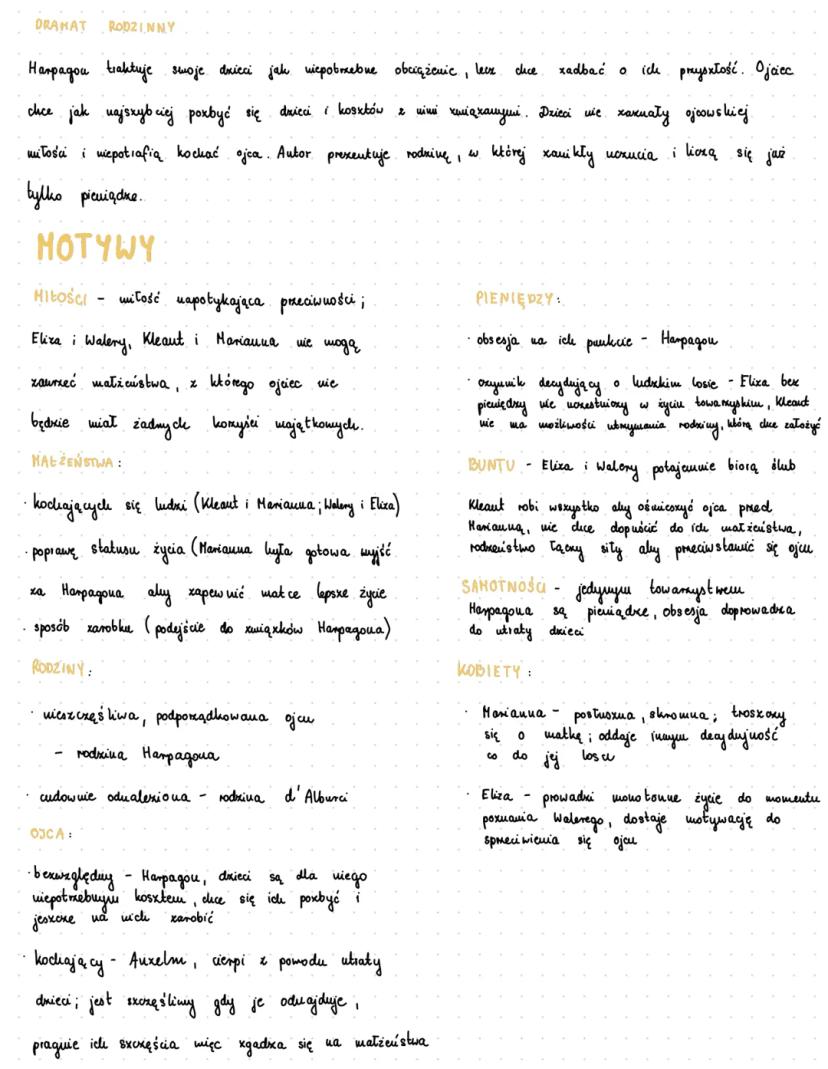 DRAMAT RODZINNY
Harpagon traktuje swoje dzieci jak niepotrzebne obciążenie, lecz chce zadbać o ich przyszłość. Ojciec
chce jak najszybciej pozbyć się dzieci i kosztów z nimi związanymi. Dzieci nie zaznały ojcowskiej
miłości i niepotrafią kochać ojca. Autor prezentuje rodzinę, w której zanikły uczucia i liczą się już
tylko pieniądze.
MOTYWY
MIŁOŚCI - miłość napotykająca przeciwności;
Eliza i Walery, Kleant i Marianna nie mogą
zawrzeć małżeństwa, z którego ojciec nie
będzie miał żadnych korzyści majątkowych.
MAŁŻEŃSTWA:
· kochających się ludzi (Kleant i Marianna; Walery i Eliza)
· poprawę statusu życia (Marianna była gotowa wyjść
za Harpagona aby zapewnić matce lepsze życie
· sposób zarobku (podejście do związków Harpagona)
RODZINY:
· nieszczęśliwa, podporządkowana ojcu
- rodzina Harpagona
· cudownie odnaleziona - rodzina d'Alburci
OJCA:
· bezwzględny - Harpagon, dzieci są dla niego
niepotrzebnym kosztem, chce się ich pozbyć i
jeszcze na nich zarobić
· kochający - Anzelm, cierpi z powodu utraty
dzieci; jest szczęśliwy gdy je odnajduje,
pragnie ich szczęścia więc zgadza się na małżeństwa
PIENIĘDZY:
· obsesja na ich punkcie - Harpagon
· czynnik decydujący o ludzkim losie - Eliza bez
pieniędzy nie uczestniczy w życiu towarzyskim, Kleant
nie ma możliwości utrzymania rodziny, którą chce założyć
BUNTU - Eliza i Walery potajemnie biorą ślub
Kleant robi wszystko aby ośmieszyć ojca przed
Marianną, nie chce dopuścić do ich małżeństwa,
rodzeństwo łączy siły aby przeciwstawić się ojcu
SAMOTNOŚCI - jedynym towarzystwem
Harpagona są pieniądze, obsesja doprowadza
do utraty dzieci
KOBIETY:
· Marianna - posłuszna, skromna; troszczy
się o matkę; oddaje innym decydujność
co do jej losu
· Eliza - prowadzi monotonne życie do momentu
poznania Walerego, dostaje motywację do
sprzeciwienia się ojcu